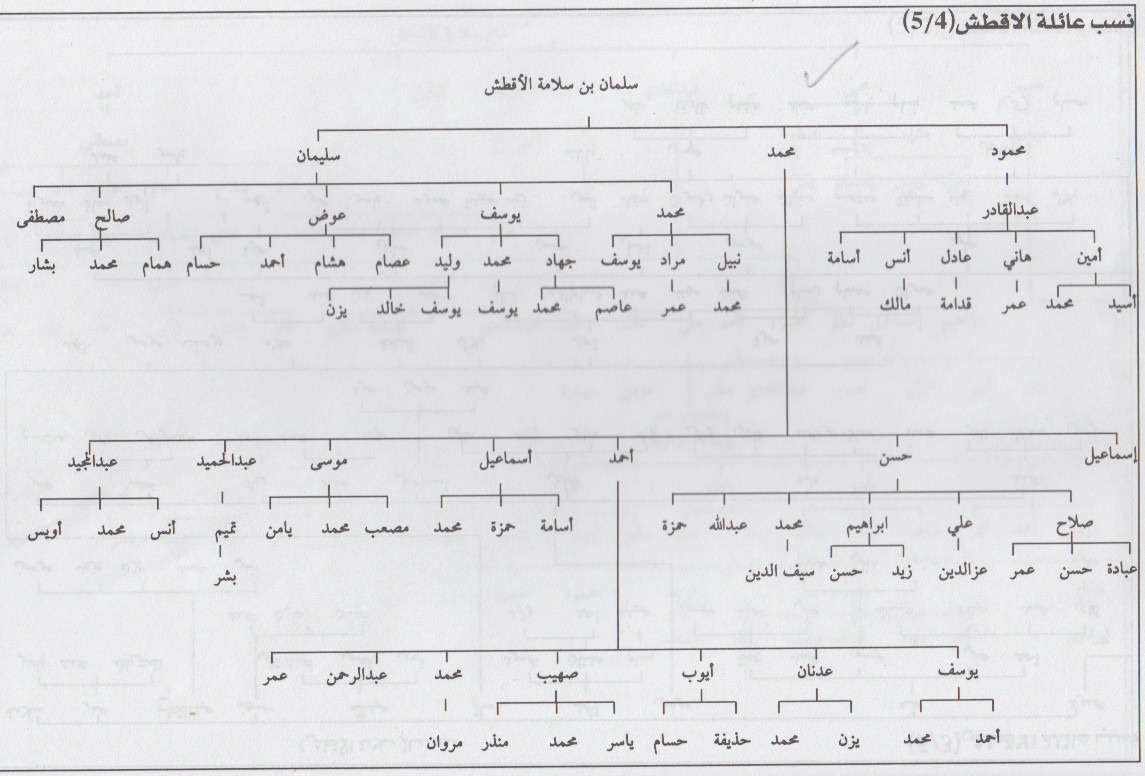 نسب عائلة الاقطش(5/4)
سلمان بن سلامة الأقطش
محمود محمد سليمان
عبدالقادر محمد يوسف عوض صالح مصطفى
أمين هاني عادل أنس أسامة نبيل مراد يوسف جهاد محمد وليد عصام هشام أحمد حسام همام محمد بشار
أسيد محمد عمر قدامة مالك محمد عمر عاصم محمد يوسف يوسف خالد يزن
إسماعيل حسن أحمد أسماعيل موسى عبدالحميد عبدالمجيد
صلاح علي ابراهيم محمد عبدالله حمزة أسامة حمزة محمد مصعب محمد يامن تميم أنس محمد أويس
عبادة حسن عمر عزالدين زيد حسن سيف الدين بشر
يوسف عدنان أيوب صهيب محمد عبدالرحمن عمر
أحمد محمد يزن محمد حذيفة حسام ياسر محمد منذر مروان